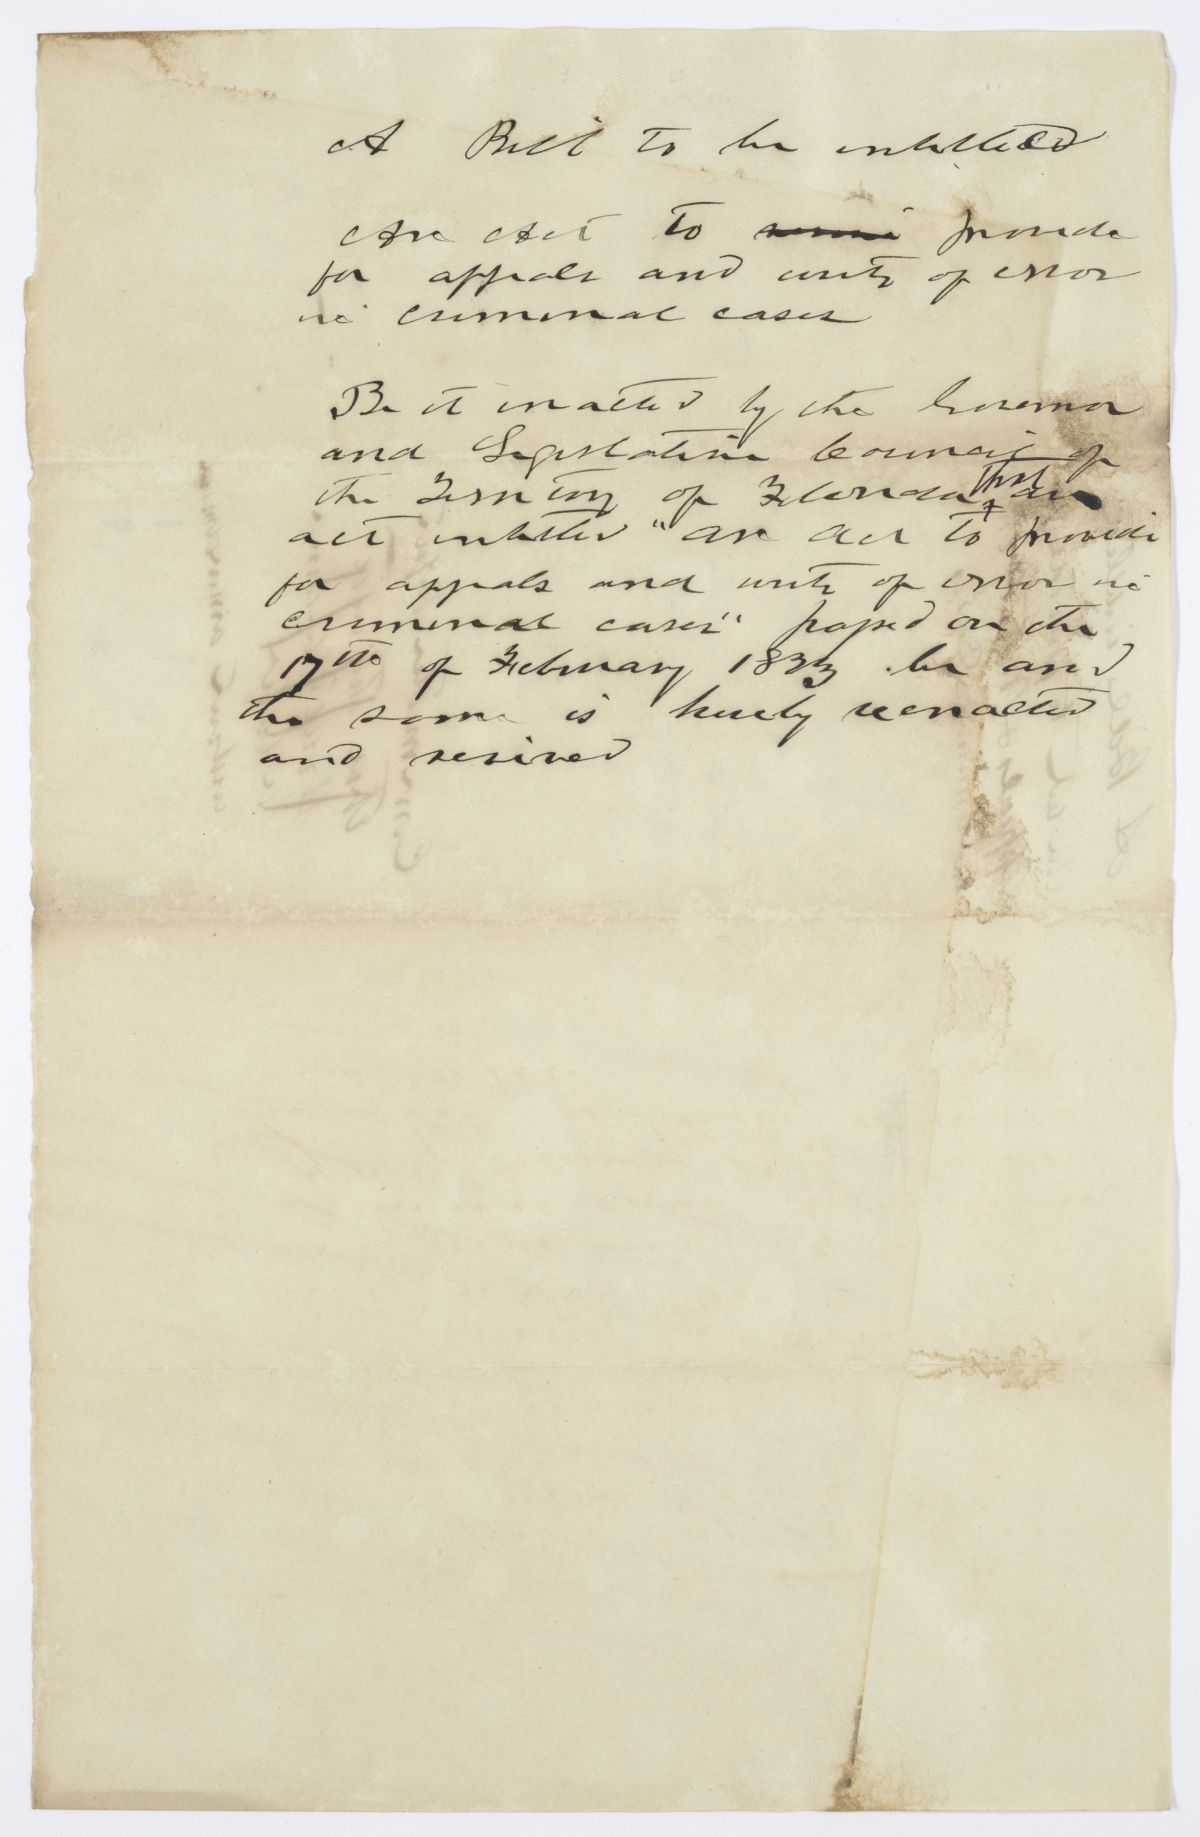 A Bill to be entitled
An Act to provide
for appeals and writs of error
in criminal cases
Be it enacted by the Governor
and Legislative Council of
the Territory of Florida, that an
act entitled "an Act to provide
for appeals and writs of error in
criminal cases" passed on the
17th of February 1833 be and
the same is hereby reenacted
and revived